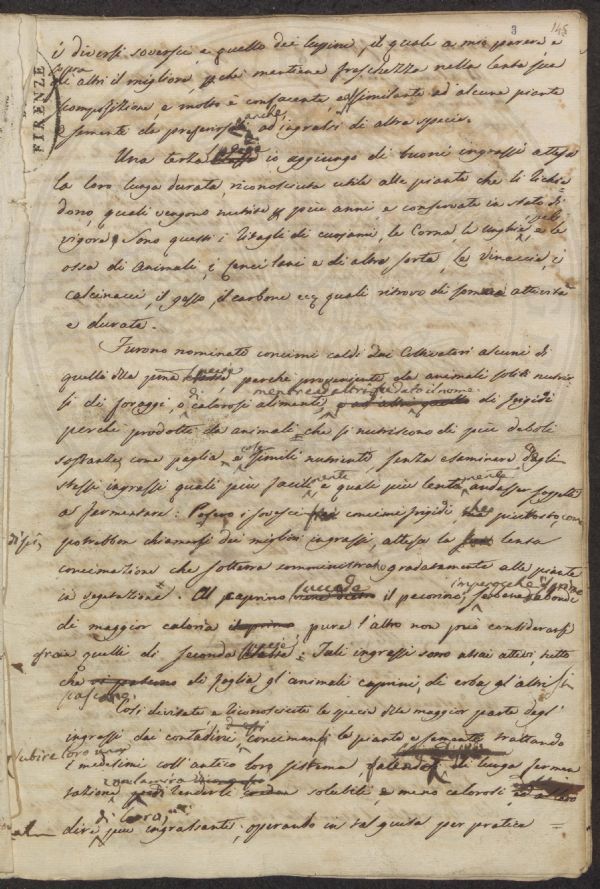 3 145
FIRENZE
i diversi soversci, e quello dei lupini, il quale a mio parere, è
sopra
gli altri il migliore, pche mantiene freschezza nella lenta sua
composizione, e molto è confacente, assimilante ad alcune piante
anche
da preferirsi ad ingrassi di altra specie.
Una terza specie io aggiungo di buoni ingrassi attesa
la loro lunga durata, riconosciuta utile alle piante che li richie=
dono, quali vengono nutrite p più anni, e conservate in stato di
vigore. Sono questi i ritagli di cuojami, le Corna, le unghie, peli e le
ossa di animali, i cenci lani e di altra sorta, la vinaccia, i
calcinacci, il gesso, il carbone ecc quali ritrovo di somma attività
e durata.
Furono nominati concimi caldi dai Coltivatori alcuni di
quelli dlla pma specie, perche proveniente da animali soliti nutrir=
mentre ad altri fu dato il nome
si di foraggi, o di calorosi alimenti, e ad altri quello di frigidi
perche prodotti da animali che si nutriscono di più deboli
sostanze, come paglia, e simili nutrienti, senza esaminare degli
stessi ingrassi quali più facilmente, e quali più lentamente andasser soggetti
a fermentare: i sovesci concimi frigidi, che piuttosto, come
potrebbon chiamarsi dei migliori ingrassi, attesa la lenta
concimazione che sotterra somministrano gradatamente alle piante
in vegetazione. Al caprino succede il pecorino,
di maggior caloria il primo pure l'altro non può considerarsi
fra quelli di seconda specie: Tali ingrassi sono assai attivi, tutto
che si pascano di foglia gl'animali caprini, di erba gl'altri si
pascono.
Così divisate e riconosciute le specie dlla maggior parte degl'
ingrassi dai contadini, concimansi le piante e sementi trattando
subire loro una
i medesimi coll'antico loro sistema, di lunga fermen
tazione renderli solubili, e meno calorosi,
di loro,
dire più ingrassanti, operando in tal guisa per pratica =